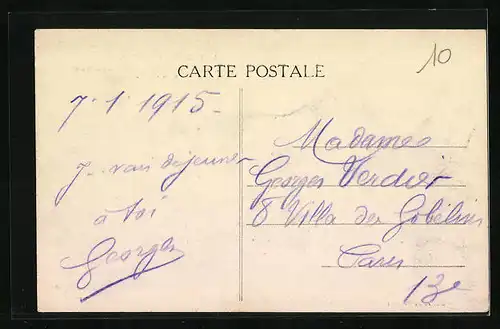 10
CARTE POSTALE
7.1.1915
J. vais déjeuner
à toi
Georges
Madame
Georges Verdier
8 Villa des Gobelins
Paris
13e